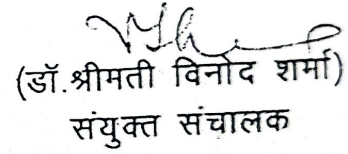 (डॉ.श्रीमती विनोद शर्मा)
संयुक्त संचालक